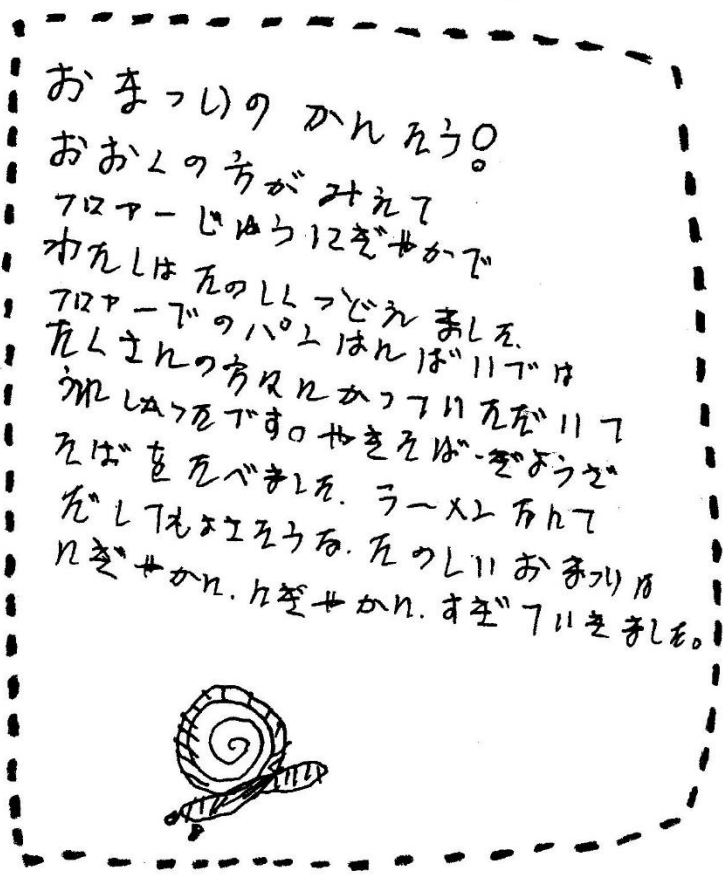 おまつりの かんそう!
おおくの方が みえて
フロアーじゅうにぎやかで
わたしは たのしくつどえました.
フロアーでのパンはんばいでは
たくさんの方々にかっていただいて
うれしかったです。やきそば・ぎょうざ
そばをたべました. ラーメンなんて
だしてもよさそうな. たのしいおまつりは
にぎやかに. にぎやかに. すぎていきました。